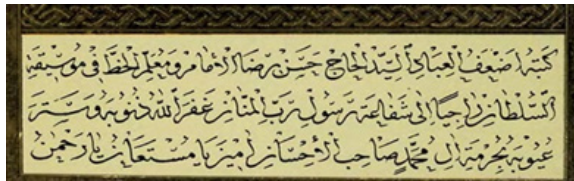 كتبه اضعف العباد السيد الحاج حسن رضا الامام ومعلم الخط في موسيقة
السلطان راجيا الى شفاعة رسول رب المنان غفر الله ذنوبه وستر
عيوبه بحرمة ال محمد صاحب الاحسان امين يا مستعان يا رحمن